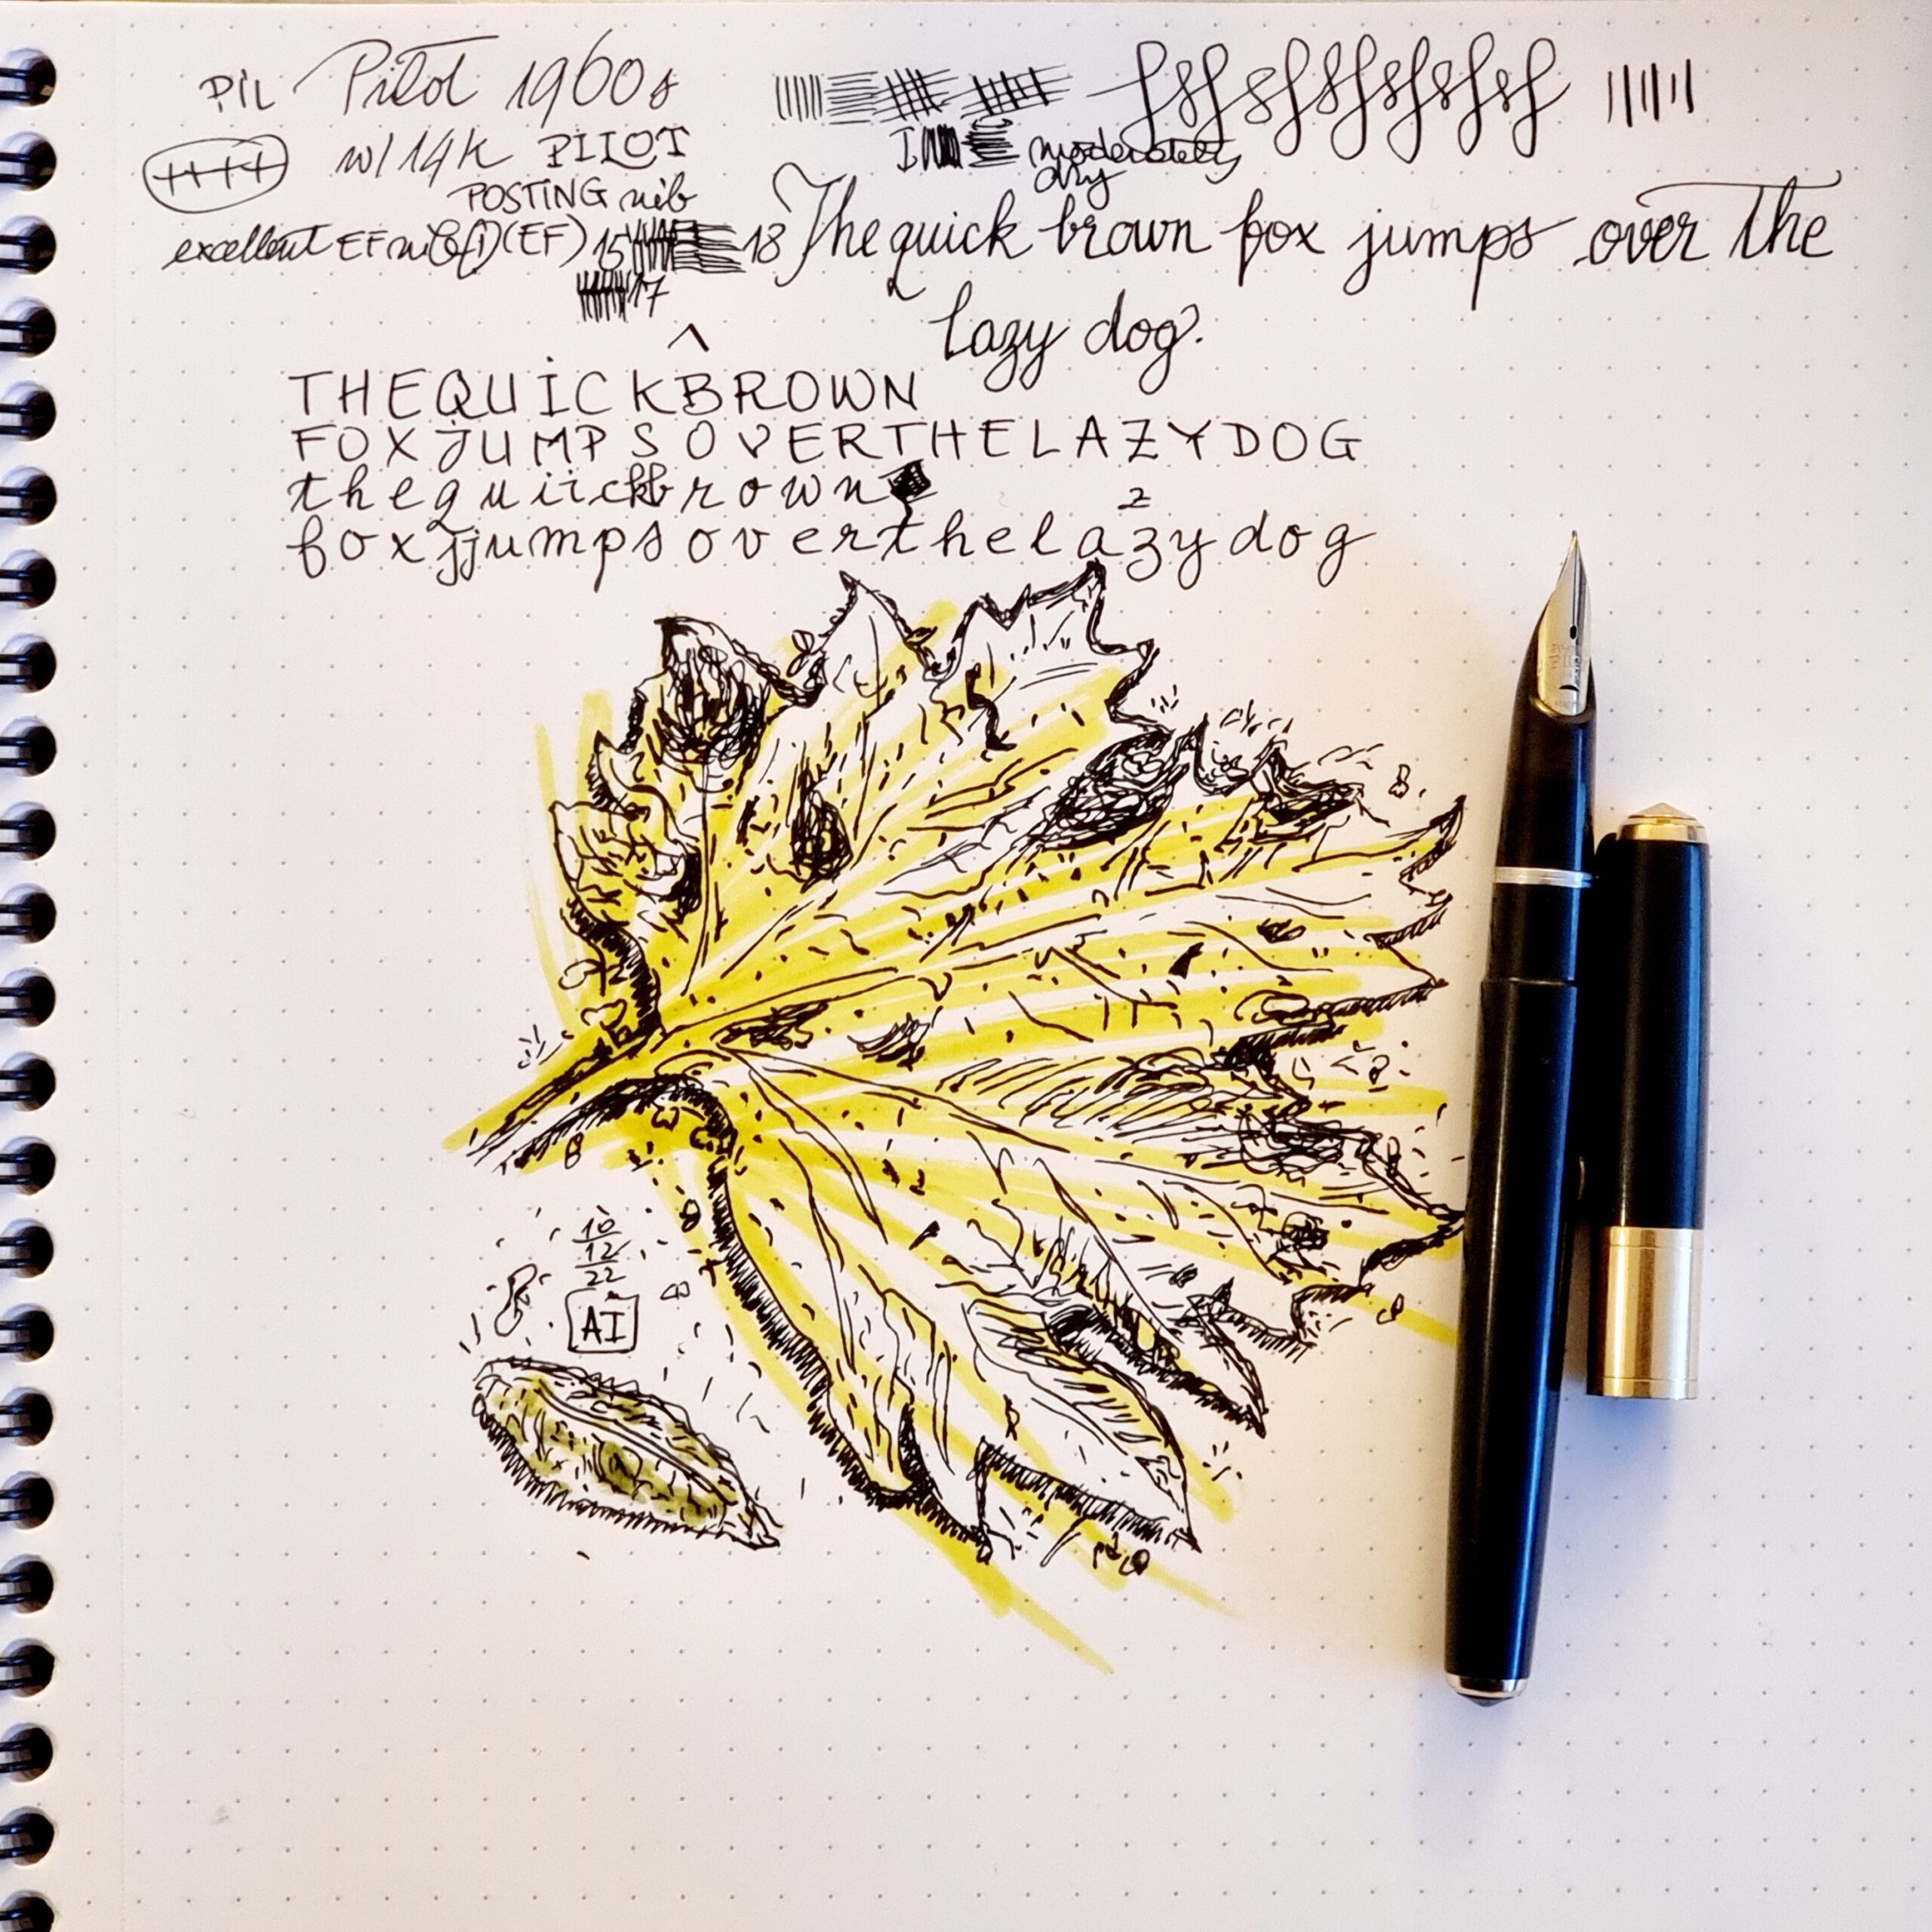 PIL Pilot 1960s
++++ w/ 14K PILOT
POSTING nib
excellent EF nib (EF) 15 18
17
moderately
dry
The quick brown fox jumps over the
lazy dog.
THEQUICKBROWN
FOXJUMPSOVERTHELAZYDOG
thequiickbrown
z
foxjjumpsoverthelazydog
10
12
22
AI